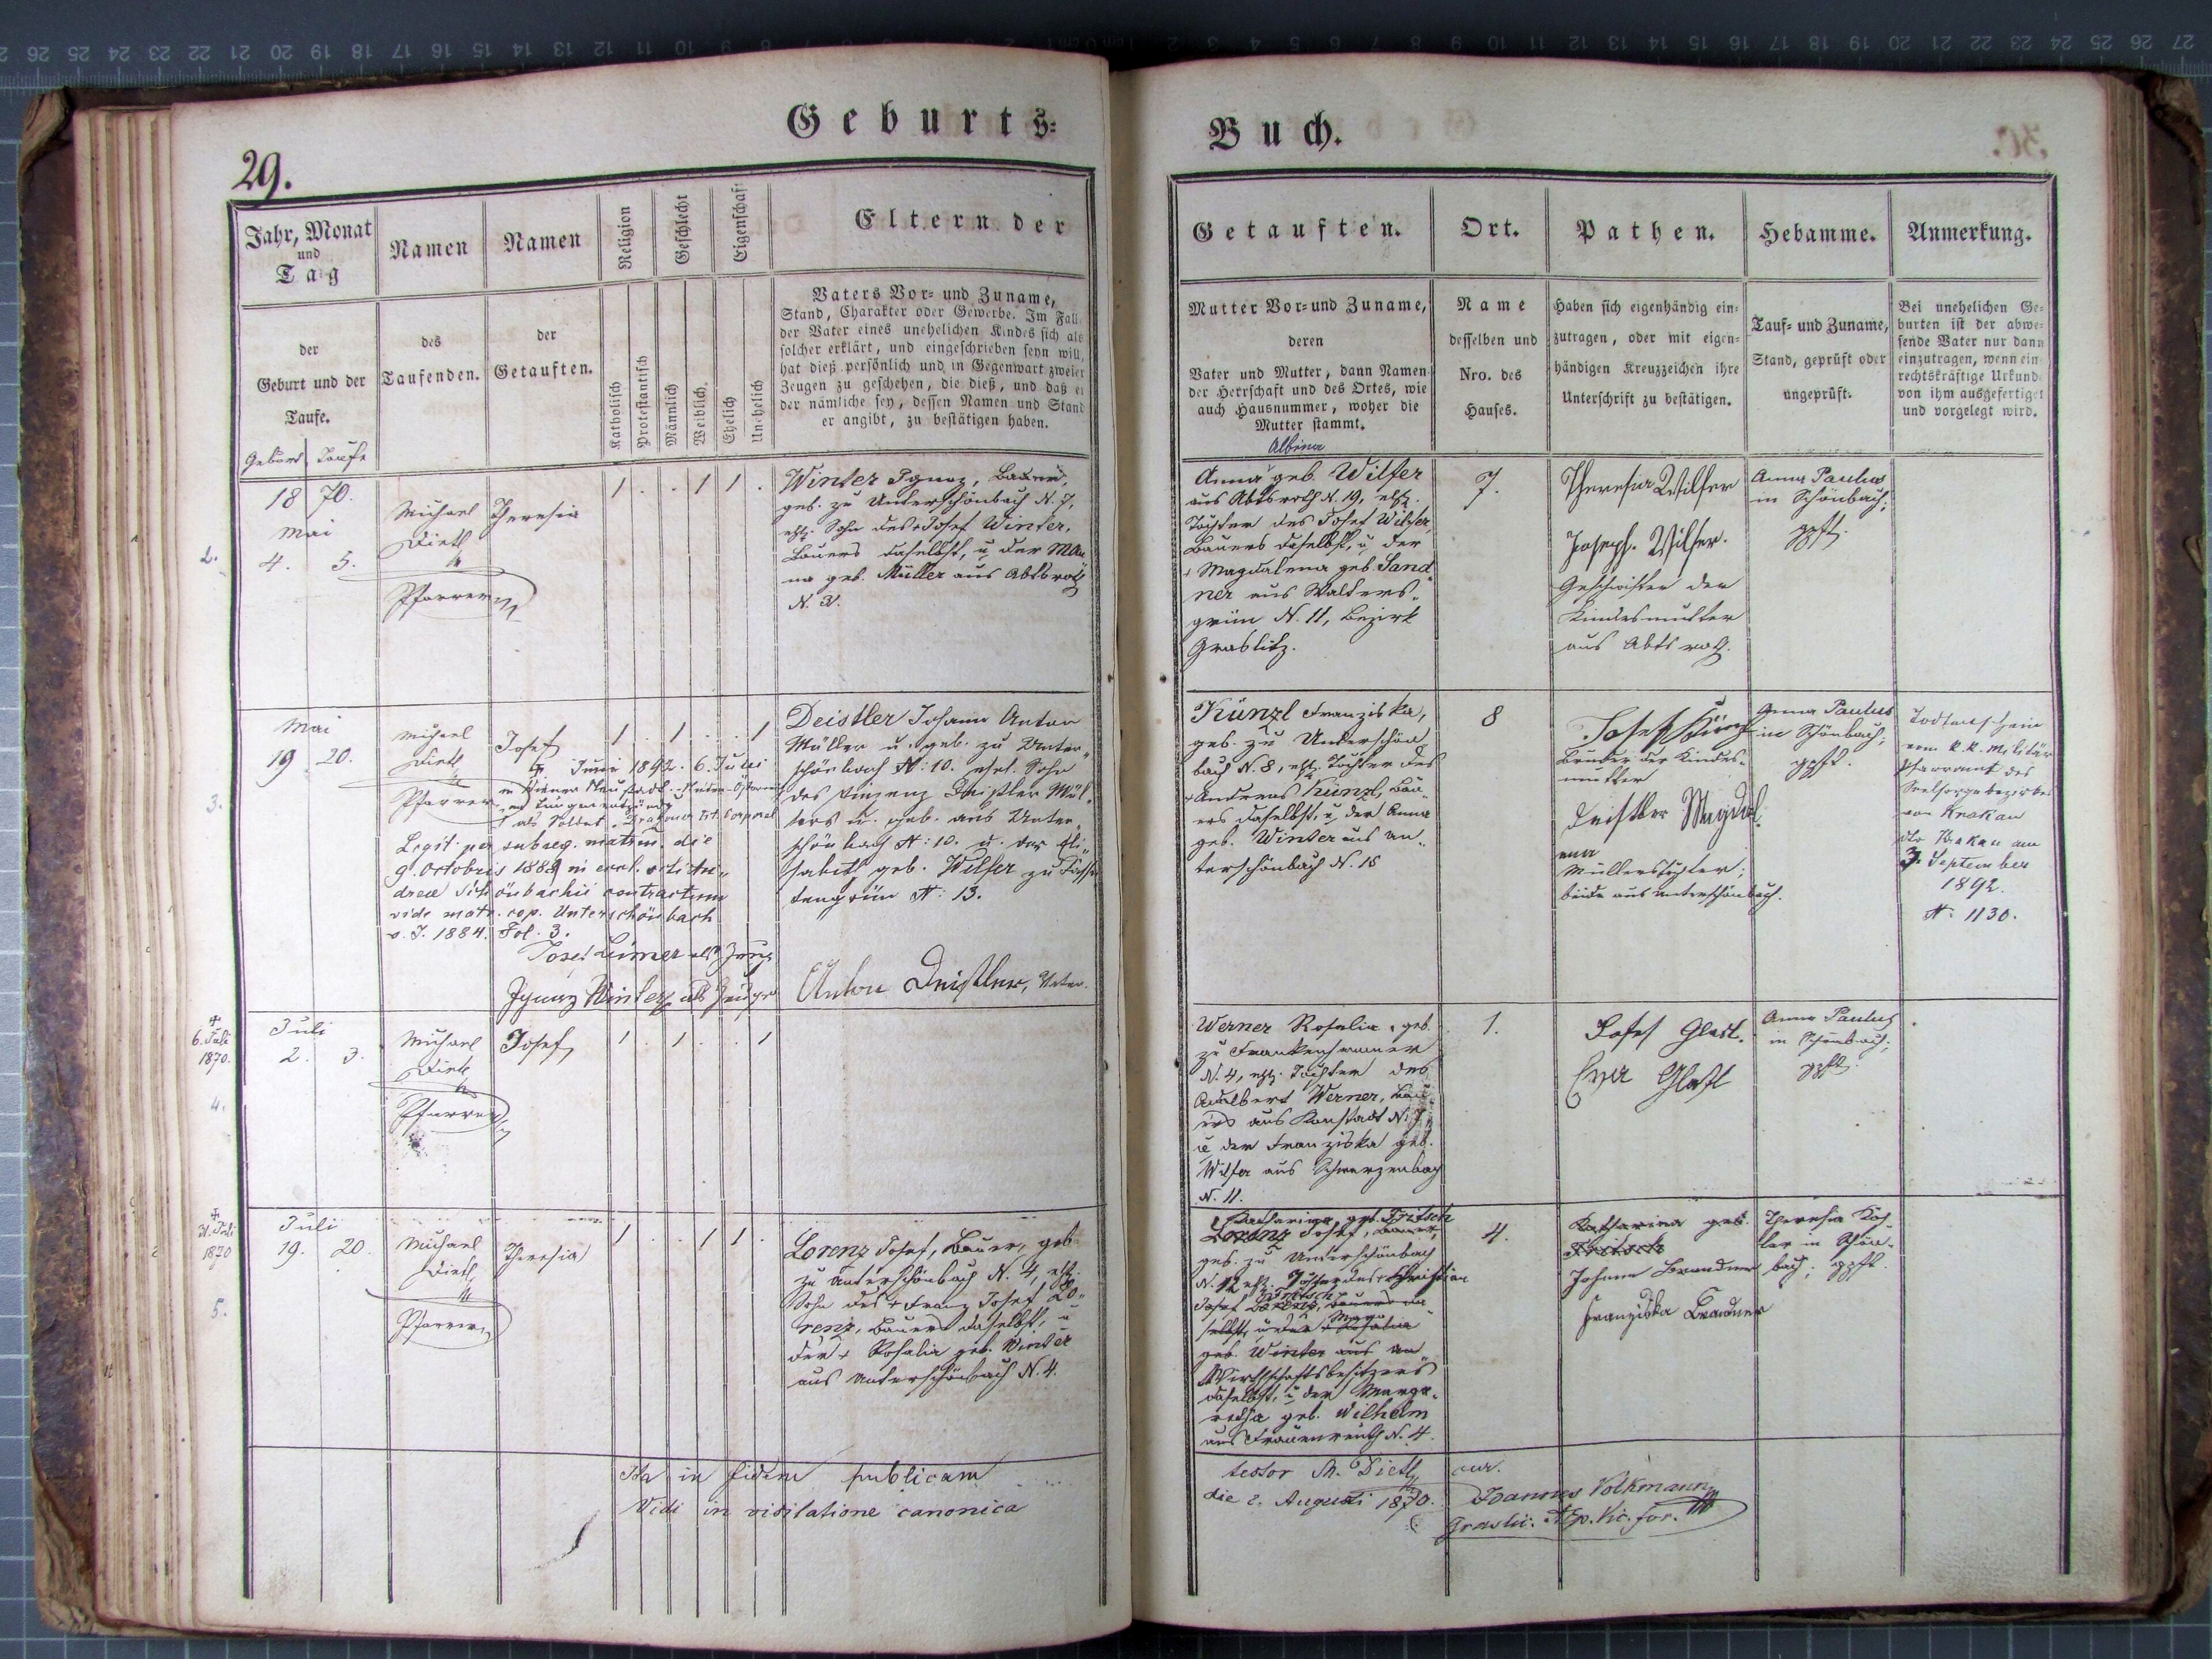 Geburts-
Buch.
29.
Jahr, Monat
und
Tag
der
Geburt und der
Taufe.
Geburt Taufe
Namen
des
Taufenden.
Namen
der
Getauften.
Religion
Katholisch
Protestantisch
Geschlecht
Männlich
Weiblich
Eigenschaft
Ehelich
Unehelich
Eltern der
Vaters Vor- und Zuname,
Stand, Charakter oder Gewerbe. Im Fall
der Vater eines unehelichen Kindes sich als
solcher erklärt, und eingeschrieben seyn will,
hat dieß persönlich und in Gegenwart zweier
Zeugen zu geschehen, die dieß, und daß er
der nämliche sey, dessen Namen und Stand
er angibt, zu bestätigen haben.
Getauften.
Mutter Vor- und Zuname,
deren
Vater und Mutter, dann Namen
der Herrschaft und des Ortes, wie
auch Hausnummer, woher die
Mutter stammt.
Ort.
Name
desselben und
Nro. des
Hauses.
Pathen.
Haben sich eigenhändig ein-
zutragen, oder mit eigen-
händigen Kreuzzeichen ihre
Unterschrift zu bestätigen.
Hebamme.
Tauf- und Zuname,
Stand, geprüft oder
ungeprüft.
Anmerkung.
Bei unehelichen Ge-
burten ist der abwe-
sende Vater nur dann
einzutragen, wenn ein
rechtskräftige Urkunde
von ihm ausgefertiget
und vorgelegt wird.
2.
18 70.
Mai
4. 5.
Michael
Dietl
Pfarrer
Theresia
1 . . 1 1 .
Winter Ignaz, Bauer,
geb. zu Unterschönbach N. 7,
ehl. Sohn des + Josef Winter,
Bauers daselbst, u. der Ma
na geb. Müller aus Abtsroth
N. 31.
Albina
Anna geb. Wilfer
aus Abtsroth N. 19, ehl.
Tochter des Josef Wilfer,
Bauers daselbst, u. der
+ Magdalena geb. Sand
ner aus Walters-
grün N. 11, Bezirk
Graslitz.
7.
Theresia Wilfer
Joseph. Wilfer.
Geschwister der
Kindesmutter
aus Abtsroth.
Anna Paulus
in Schönbach;
gpft.
3.
Mai
19 20.
Michael
Dietl
Pfarrer
Josef
1 . 1 . . 1
Juni 1892. 6. Juni
in Wiener Neustadt - Nieder-Österreich
an Lungenentzündg
als Soldat
Legit. per subseq. matrim. die
9. Octobris 1884 in eccl.
Schönbachii contractum
vide matr. cop. Unterschönbach
v. J. 1884. Fol. 3.
Josef Leimer als Zeuge
Ignaz Winter als Zeuge
Deistler Johann Anton
Müller u. geb. zu Unter-
schönbach N: 10. ehel. Sohn
des Vinzenz Deistler Mül-
lers u. geb. aus Unter-
schönbach N: 10. u. der Eli-
sabeth geb. Wilfer zu
tengrün N: 13.
Anton Deistler, Vater.
Künzl Franziska,
geb. zu Unterschön
bach N. 8, ehl. Tochter des
+ Andreas Künzl, Bau-
ers daselbst, u. der Anna
geb. Winter aus Un-
terschönbach N. 18
8
Josef Künzl
Bruder der Kindes-
mutter
Deistler Magdal.
ena
Müllerstochter;
beide aus Unterschönbach.
Anna Paulus
in Schönbach;
gpft.
Todtenschein
vom k.k. Militär
Pfarramt des
Seelsorgebezirkes
von Krakau
dto Krakau am
3. September
1892.
N. 1130.
6. Juli
1870.
4.
Juli
2. 3.
Michael
Dietl
Pfarrer
Josef
1 . 1 . . 1
Werner Rosalia, geb.
zu Frankenhammer
N. 4, ehl. Tochter des
Adalbert Werner, Bau-
ers aus Konstadt N. 7,
u. der Franziska geb.
Wilfer aus Schwarzenbach
N. 11.
1.
Josef Glasl.
Eva Glasl
Anna Paulus
in Schönbach;
gpft.
31. Juli
1870
5.
Juli
19. 20.
Michael
Dietl
Pfarrer
Theresia
1 . . 1 1 .
Lorenz Josef, Bauer, geb.
zu Unterschönbach N. 4, ehl.
Sohn des + Franz Josef Lo-
renz, Bauers daselbst, u.
der + Rosalia geb. Winter
aus Unterschönbach N. 4.
Katharina geb. Fritsch
Lorenz Josef, Bauer,
geb. zu Unterschönbach
N. 12 ehl. Tochter des + Christian
Josef Fritsch Lorenz, Bauers da-
selbst, u. der + Rosalia
geb. Winter aus Un
Wirthschaftsbesitzers
daselbst, u. der Marga-
retha geb. Wilhelm
aus Frauenreuth N. 4.
4.
Katharina geb.
Fritsch
Johann Brandner
Franziska Brandner
Theresia Koh-
ler in Schön-
bach; gpft.
Ita in fidem publicam
testor M. Dietl, cur.
Vidi in visitatione canonica
die 2. Augusti 1870.
Joannes Volkmann
Ep. Vic. for.